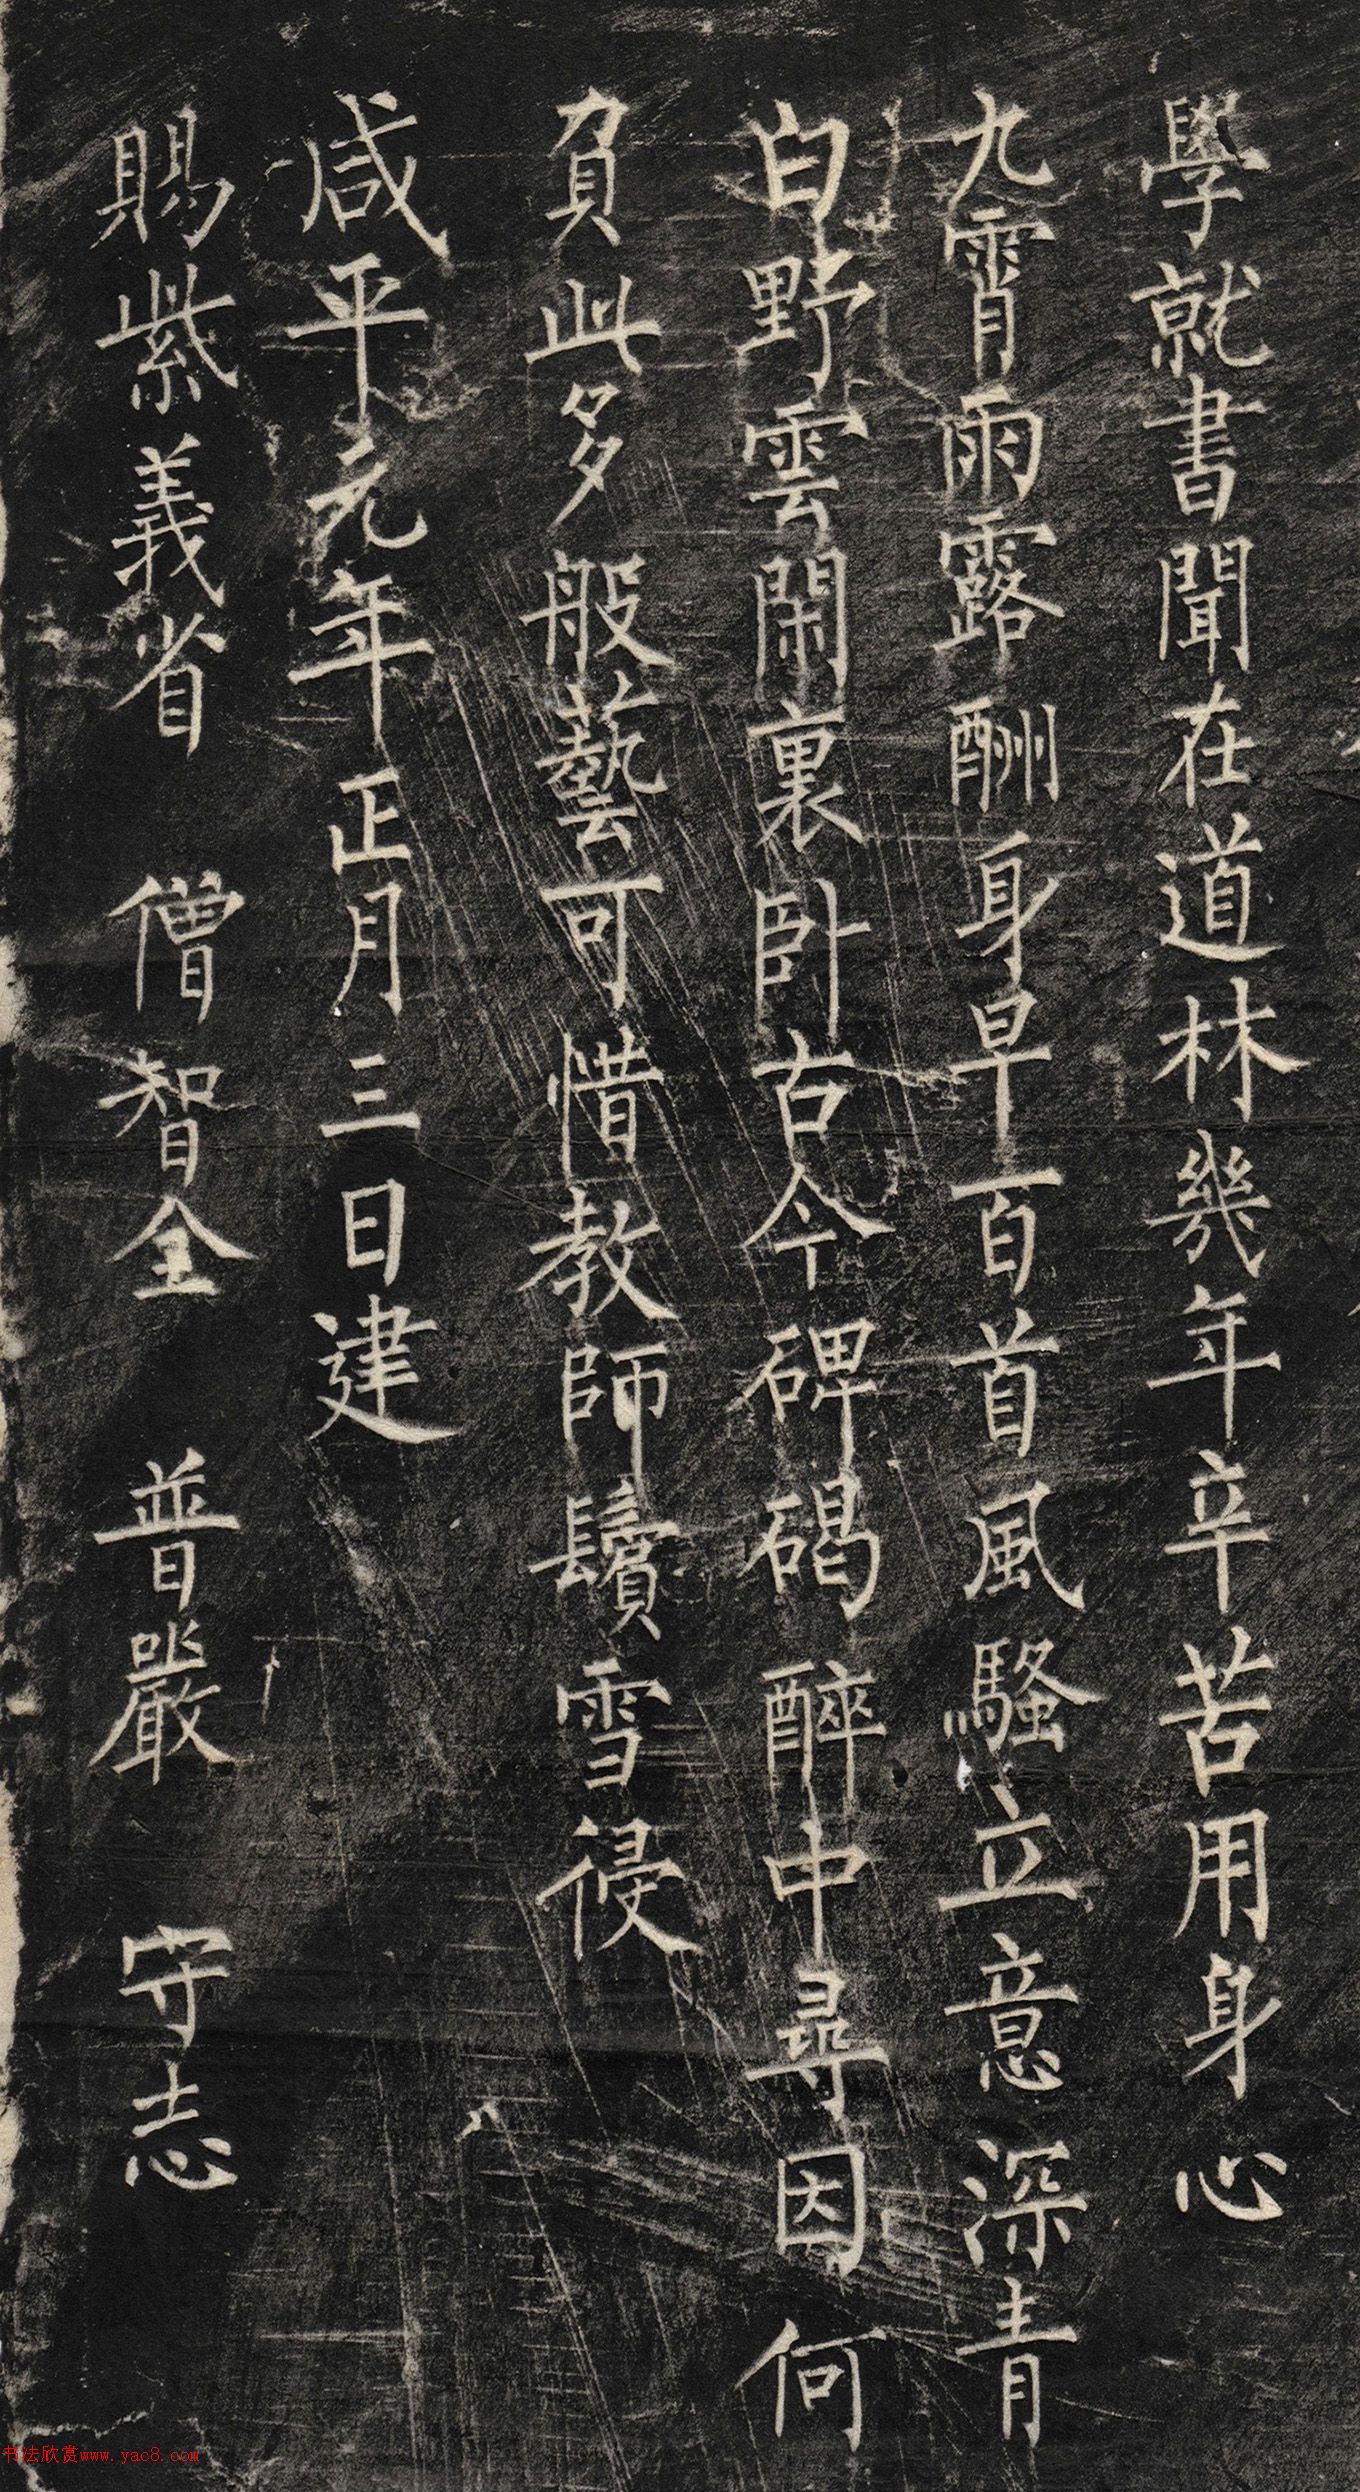 學就書聞在道林幾年辛苦用身心
九霄雨露酬身早百首風騷立意深青
白野雲閑裏卧古今碑碣醉中尋因何
負此多般藝可惜教師鬢雪侵
咸平元年正月三日建
賜紫義省　僧智全　普嚴　守志
书法欣赏www.yac8.com